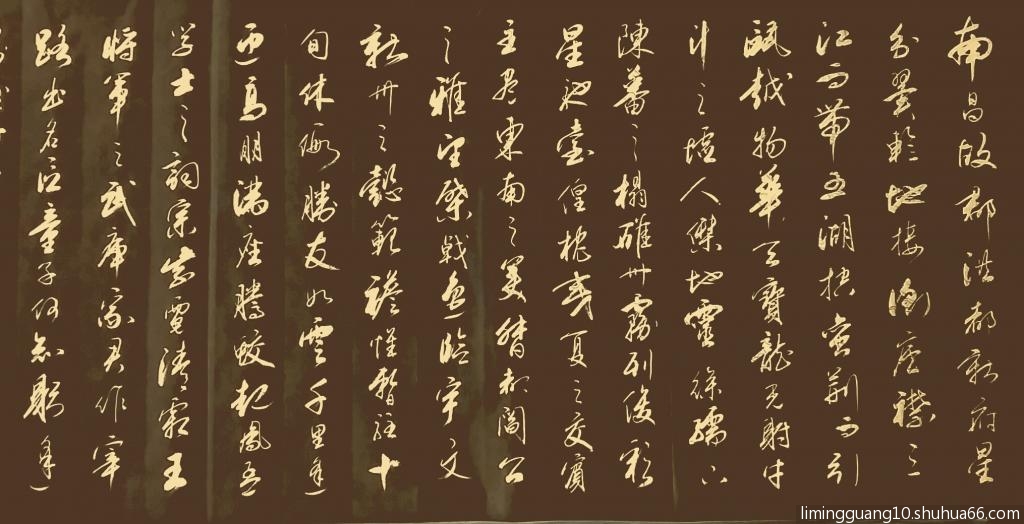 南昌故郡洪都新府星
分翼軫地接衡廬襟三
江而帶五湖控蠻荊而引
甌越物華天寶龍光射牛
斗之墟人傑地靈徐孺下
陳蕃之榻雄州霧列俊彩
星馳臺隍枕夷夏之交賓
主盡東南之美督都閻公
之雅望棨戟遙臨宇文
新州之懿範襜帷暫駐十
旬休暇勝友如雲千里逢
迎高朋滿座騰蛟起鳳孟
學士之詞宗紫電清霜王
將軍之武庫家君作宰
路出名區童子何知躬逢
limingguang10.shuhua66.com